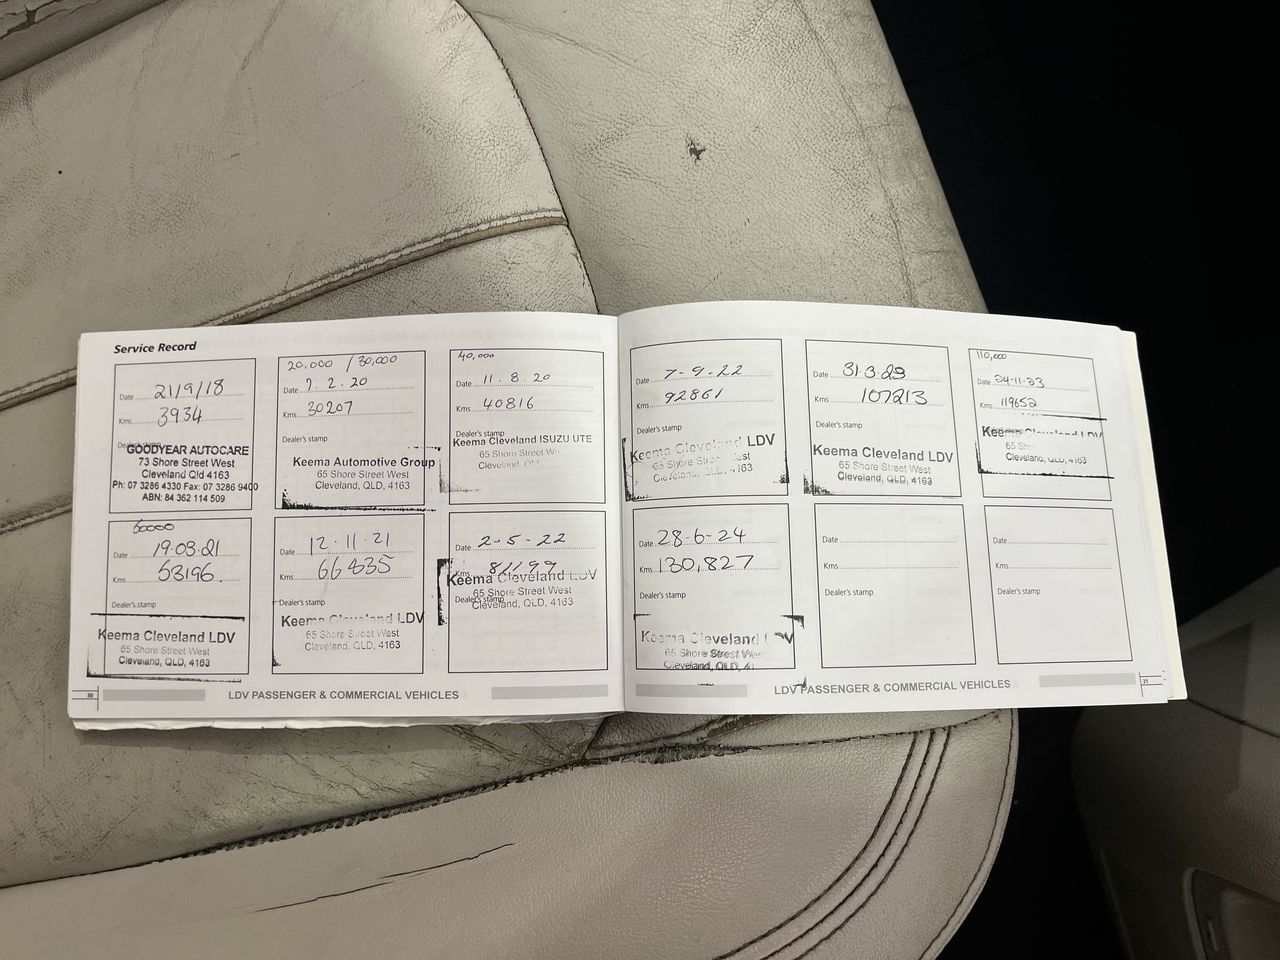 Service Record
Date 21/9/18
Kms 3934
GOODYEAR AUTOCARE
73 Shore Street West
Cleveland Qld 4163
Ph: 07 3286 4330 Fax: 07 3286 9400
ABN: 84 362 114 509
20,000 / 30,000
Date 7.2.20
Kms 30207
Dealer's stamp
Keema Automotive Group
65 Shore Street West
Cleveland, QLD, 4163
40,000
Date 11.8.20
Kms 40816
Dealer's stamp
Keema Cleveland ISUZU UTE
65 Shore Street
Cleveland,
Date 19.03.21
Kms 53196.
Dealer's stamp
Keema Cleveland LDV
65 Shore Street West
Cleveland, QLD, 4163
Date 12.11.21
Kms 66435
Dealer's stamp
Keema Cleveland LDV
65 Shore Street West
Cleveland, QLD, 4163
Date 2-5-22
Kms 81199
Keema Cleveland LDV
65 Shore Street West
Dealer's stamp
Cleveland, QLD, 4163
30
LDV PASSENGER & COMMERCIAL VEHICLES
Date 7-9-22
Kms 92861
Dealer's stamp
Keema Cleveland LDV
65 Shore Street West
Cleveland, QLD, 4163
Date 31.3.23
Kms 107213
Dealer's stamp
Keema Cleveland LDV
65 Shore Street West
Cleveland, QLD, 4163
110,000
Date 24.11.23
Kms 119652
Keema Cleveland LDV
65
Cleveland, QLD, 4163
Date 28-6-24
Kms 130,827
Dealer's stamp
Keema Cleveland LDV
65 Shore Street West
Cleveland, QLD,
Date
Kms
Dealer's stamp
Date
Kms
Dealer's stamp
LDV PASSENGER & COMMERCIAL VEHICLES
31